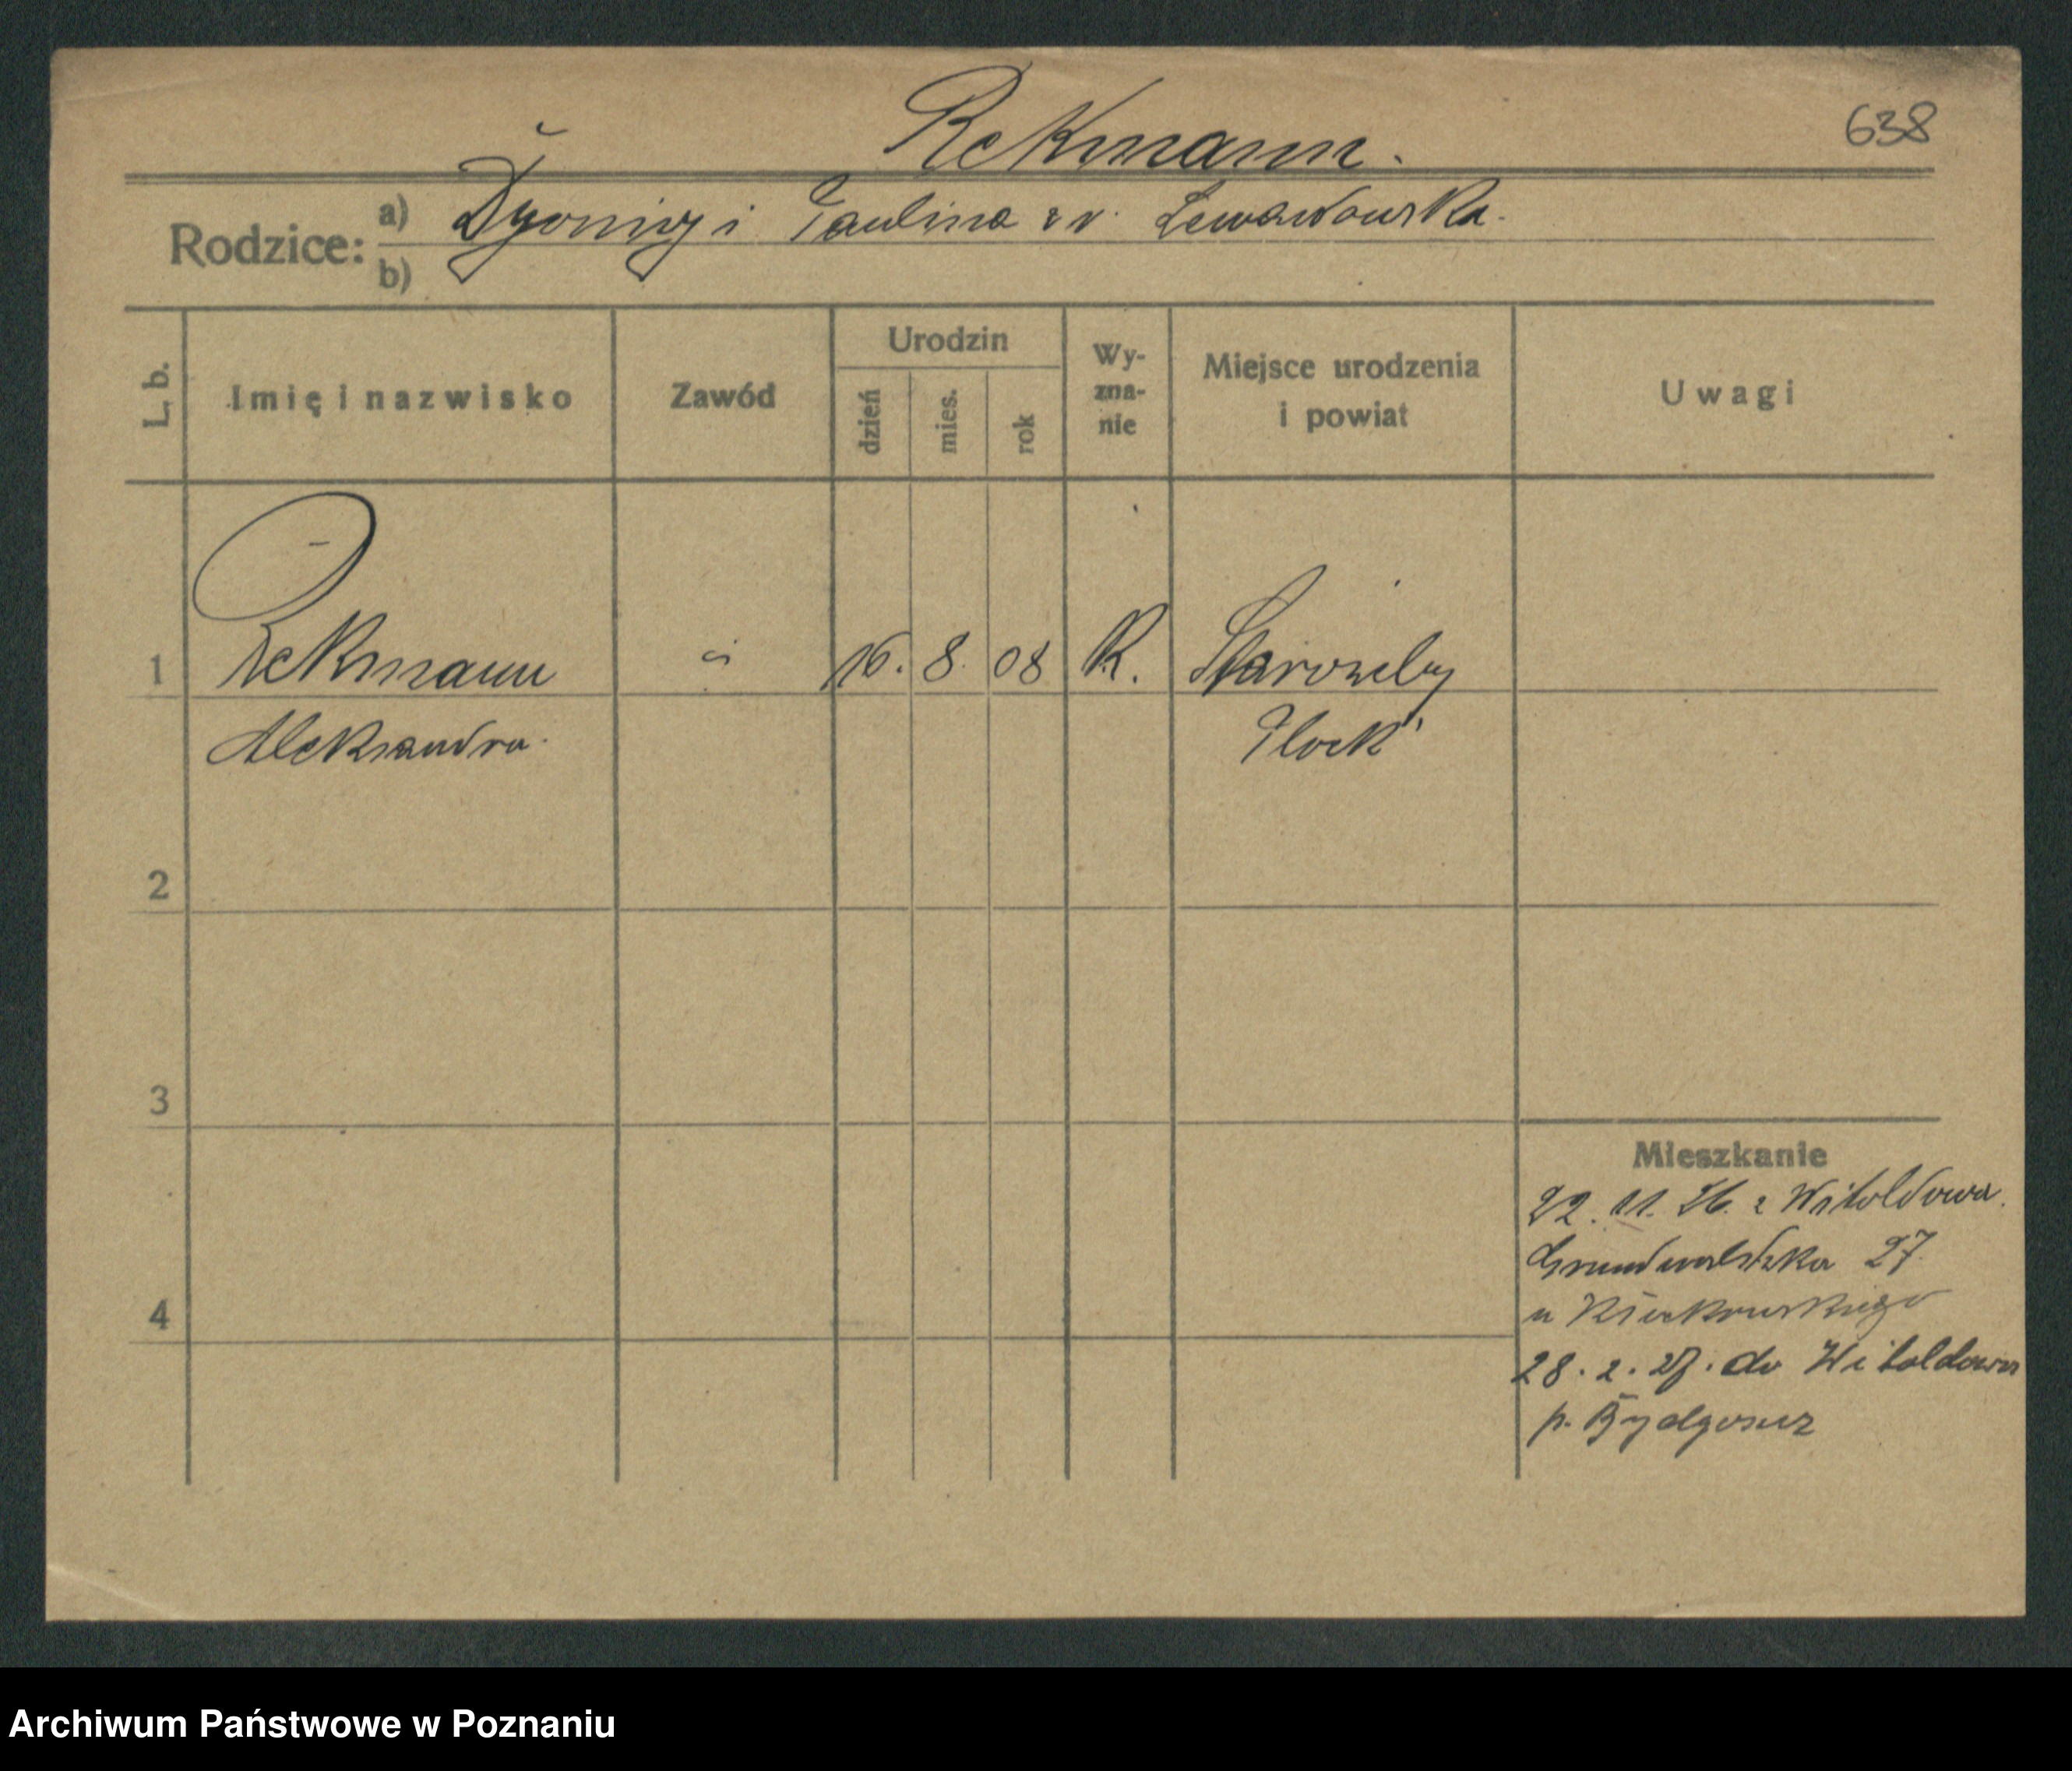 Rekmann.
638
Rodzice:
a) Dyonizy i Paulina z d. Lewandowska.
b)
L. b.
Imię i nazwisko
Zawód
Urodzin
dzień
mies.
rok
Wy-
zna-
nie
Miejsce urodzenia
i powiat
Uwagi
1 Rekmann 16. 8. 08 K. Staroźreby
Aleksandra. Płock
2
3
4
Mieszkanie
22. 11. 26. z Witoldowa.
Grunwaldzka 27
u
28. 2. 27. do Witoldowa
p. Bydgoszcz
Archiwum Państwowe w Poznaniu